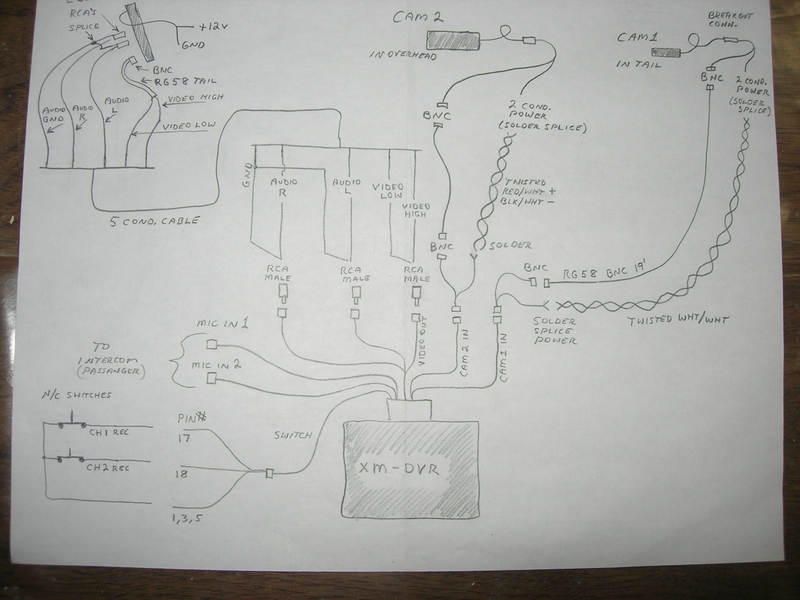 RCA'S
SPLICE
+12V
GND
BNC
RG58 TAIL
VIDEO HIGH
AUDIO
GND
AUDIO
R
AUDIO
L
VIDEO LOW
5 COND. CABLE
CAM 2
IN OVERHEAD
BNC
2 COND.
POWER
(SOLDER SPLICE)
TWISTED
RED/WHT +
BLK/WHT -
BNC
SOLDER
BREAKOUT
CONN.
CAM1
IN TAIL
BNC
2 COND.
POWER
(SOLDER
SPLICE)
GND
AUDIO
R
AUDIO
L
VIDEO
LOW
VIDEO
HIGH
RCA
MALE
RCA
MALE
RCA
MALE
BNC
RG58 BNC 19'
SOLDER
SPLICE
POWER
TWISTED WHT/WHT
VIDEO OUT
CAM 2 IN
CAM 1 IN
TO
INTERCOM
(PASSANGER)
MIC IN 1
MIC IN 2
N/C SWITCHES
CH1 REC
CH2 REC
PIN#
17
18
1,3,5
SWITCH
XM-DVR